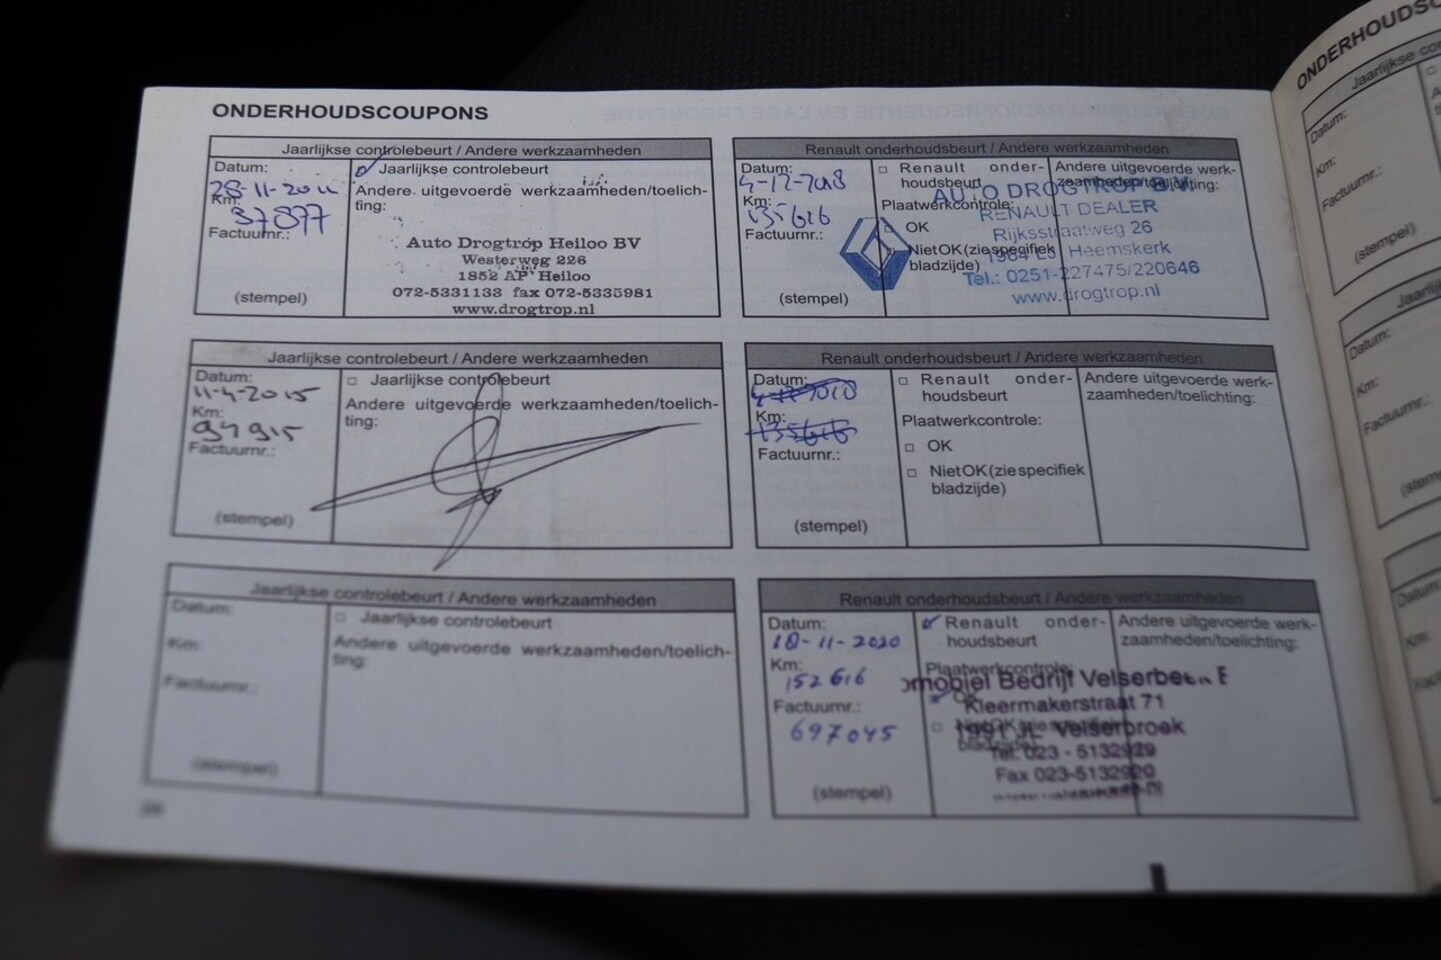 ONDERHOUDSCOUPONS
Jaarlijkse controlebeurt / Andere werkzaamheden
Datum:
Jaarlijkse controlebeurt
28-11-2011
Andere uitgevoerde werkzaamheden/toelich-
ting:
Km:
37877
Factuurnr.:
Auto Drogtrop Heiloo BV
Westerweg 226
1852 AP Heiloo
072-5331138 fax 072-5335981
www.drogtrop.nl
(stempel)
Renault onderhoudsbeurt / Andere werkzaamheden
Datum:
4-12-2018
Km:
135616
Factuurnr.:
(stempel)
Renault onder-
houdsbeurt
Plaatwerkcontrole:
OK
Niet OK (zie specifiek
bladzijde)
Andere uitgevoerde werk-
zaamheden/toelichting:
AUTO DROGTROP B.V.
RENAULT DEALER
Rijksstraatweg 26
Heemskerk
Tel.: 0251-227475/220646
www.drogtrop.nl
Jaarlijkse controlebeurt / Andere werkzaamheden
Datum:
11-4-2015
Km:
94915
Factuurnr.:
(stempel)
Jaarlijkse controlebeurt
Andere uitgevoerde werkzaamheden/toelich-
ting:
Renault onderhoudsbeurt / Andere werkzaamheden
Datum:
4-12-2018
Km:
135616
Factuurnr.:
(stempel)
Renault onder-
houdsbeurt
Plaatwerkcontrole:
OK
Niet OK (zie specifiek
bladzijde)
Andere uitgevoerde werk-
zaamheden/toelichting:
Jaarlijkse controlebeurt / Andere werkzaamheden
Datum:
Km:
Factuurnr.:
(stempel)
Jaarlijkse controlebeurt
Andere uitgevoerde werkzaamheden/toelich-
ting:
Renault onderhoudsbeurt / Andere werkzaamheden
Datum:
18-11-2020
Km:
152616
Factuurnr.:
697045
(stempel)
Renault onder-
houdsbeurt
Plaatwerkcontrole:
OK
Niet OK (zie specifiek
bladzijde)
Andere uitgevoerde werk-
zaamheden/toelichting:
omobiel Bedrijf Velserbeek B
Kleermakerstraat 71
1991 JL Velserbroek
Tel. 023 - 5132929
Fax 023-5132920
ONDERHOUDSC
Jaarlijkse co
Datum:
Km:
Factuurnr.:
(stempel)
Jaarlijk
Datum:
Km:
Factuurnr.:
(stem
Datum:
Km: